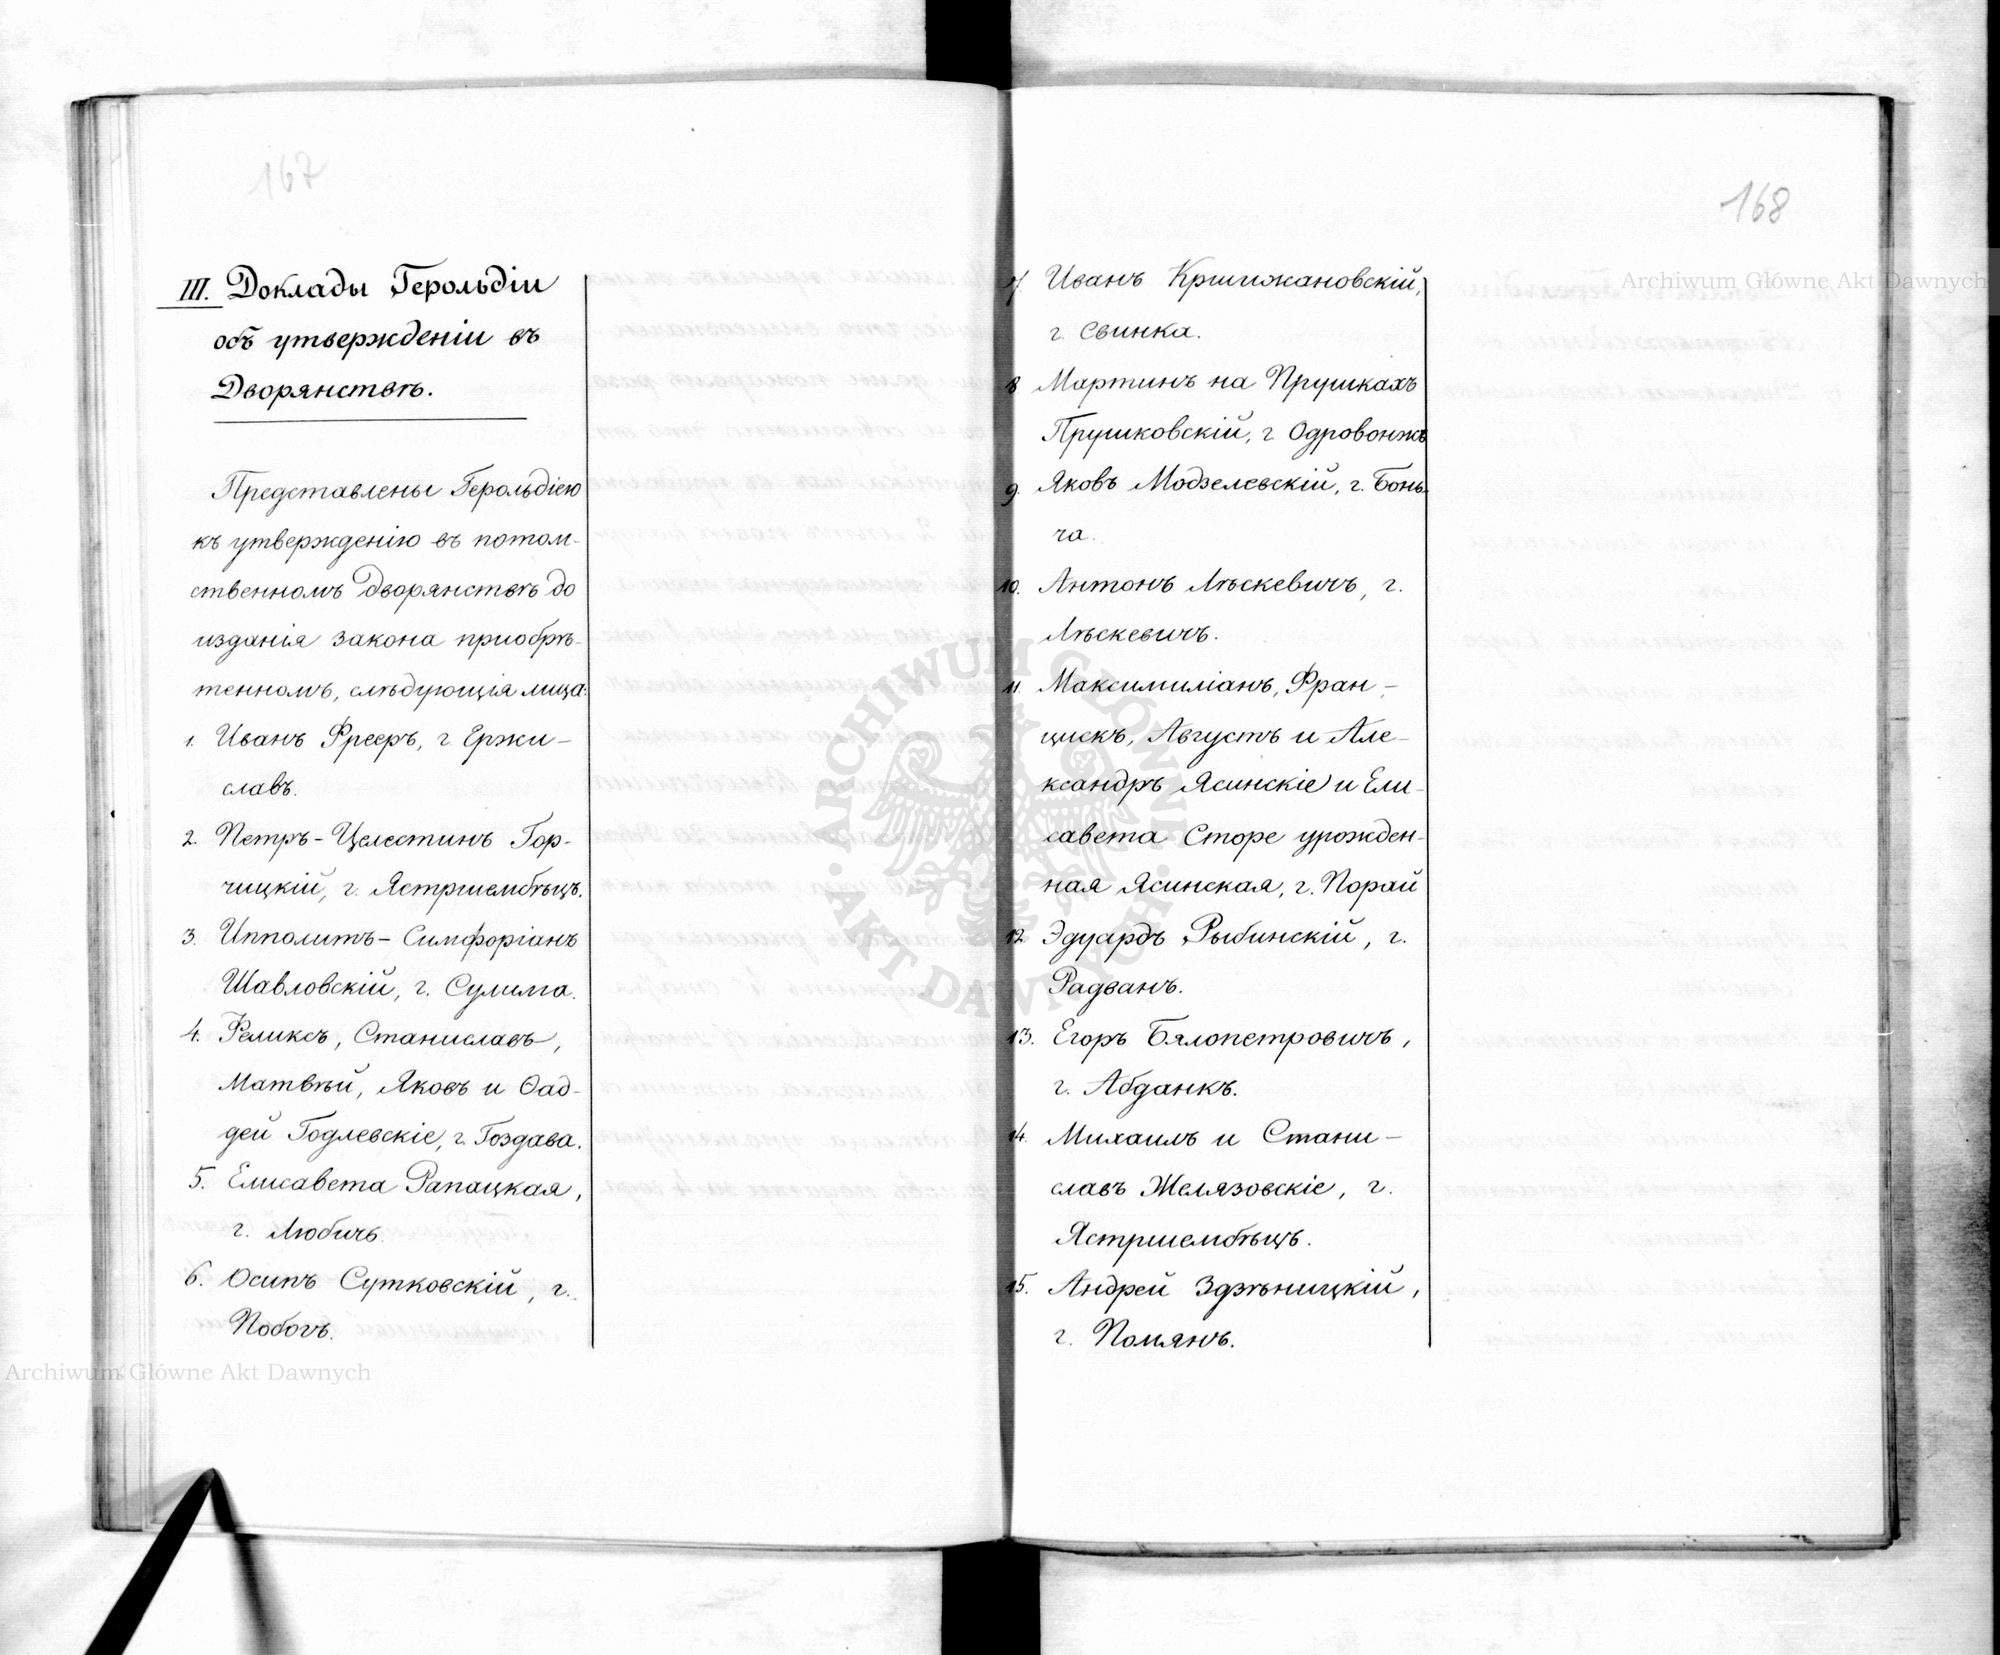 167
III. Доклады Герольдіи
объ утвержденіи въ
Дворянствѣ.
Представлены Герольдіею
къ утвержденію въ потом-
ственномъ Дворянствѣ до
изданія закона пріобрѣ-
тенномъ, слѣдующія лица:
1. Иванъ Фрееръ, г. Ержи-
славъ.
2. Петръ-Целестинъ Гор-
чицкій, г. Ястршембѣцъ.
3. Ипполитъ-Симфоріанъ
Шавловскій, г. Сулима.
4. Феликсъ, Станиславъ,
Матвѣй, Яковъ и Ѳад-
дей Годлевскіе, г. Гоздава.
5. Елисавета Рапацкая,
г. Любичъ.
6. Осипъ Сутковскій, г.
Побогъ.
168
7. Иванъ Кршижановскій,
г. Свинка.
8 Мартинъ на Прушкахъ
Прушковскій, г. Одровонжъ
9. Яковъ Модзелевскій, г. Бонь-
ча.
10. Антонъ Лѣскевичъ, г.
Лѣскевичъ.
11. Максимиліанъ, Фран-
цискъ, Августъ и Але-
ксандръ Ясинскіе и Ели-
савета Сторе урожден-
ная Ясинская, г. Порай
12 Эдуардъ Рыбинскій, г.
Радванъ.
13. Егоръ Бялопетровичъ,
г. Абданкъ.
14. Михаилъ и Стани-
славъ Желязовскіе, г.
Ястршембѣцъ.
15. Андрей Здзѣницкій,
г. Помянъ.
Archiwum Główne Akt Dawnych
Archiwum Główne Akt Dawnych
ARCHIWUM GŁÓWNE · AKT DAWNYCH ·